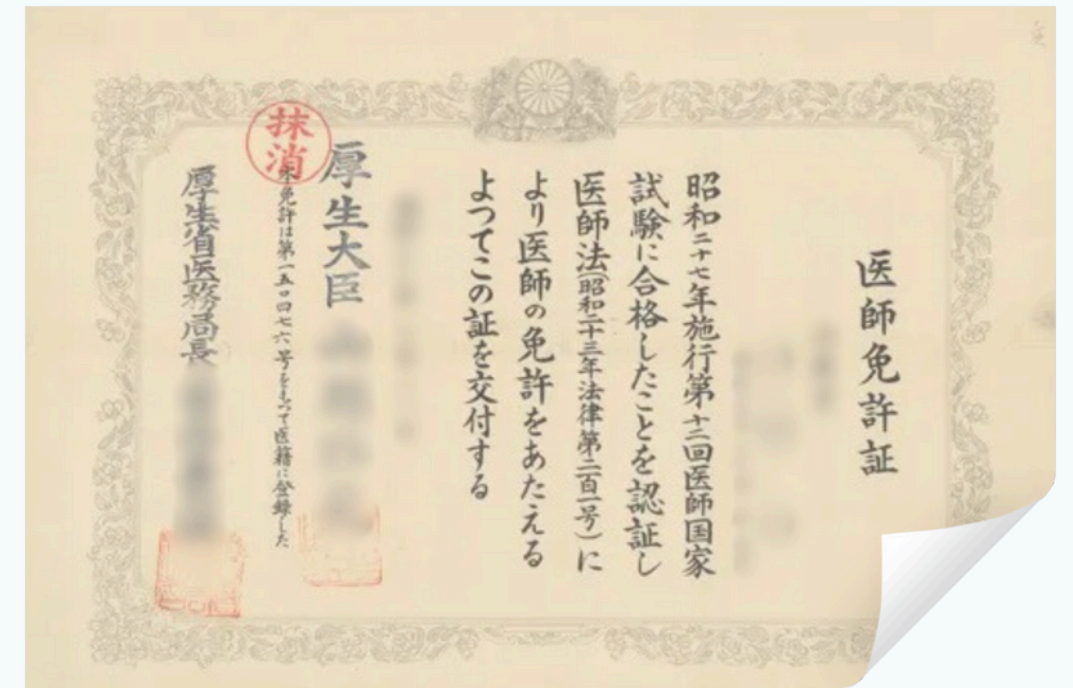 医師免許証
昭和二十七年施行第十二回医師国家
試験に合格したことを認証し
医師法(昭和二十三年法律第二百一号)に
より医師の免許をあたえる
よつてこの証を交付する
厚生大臣
抹消
本免許は第一五〇四七六号をもつて医籍に登録した
厚生省医務局長